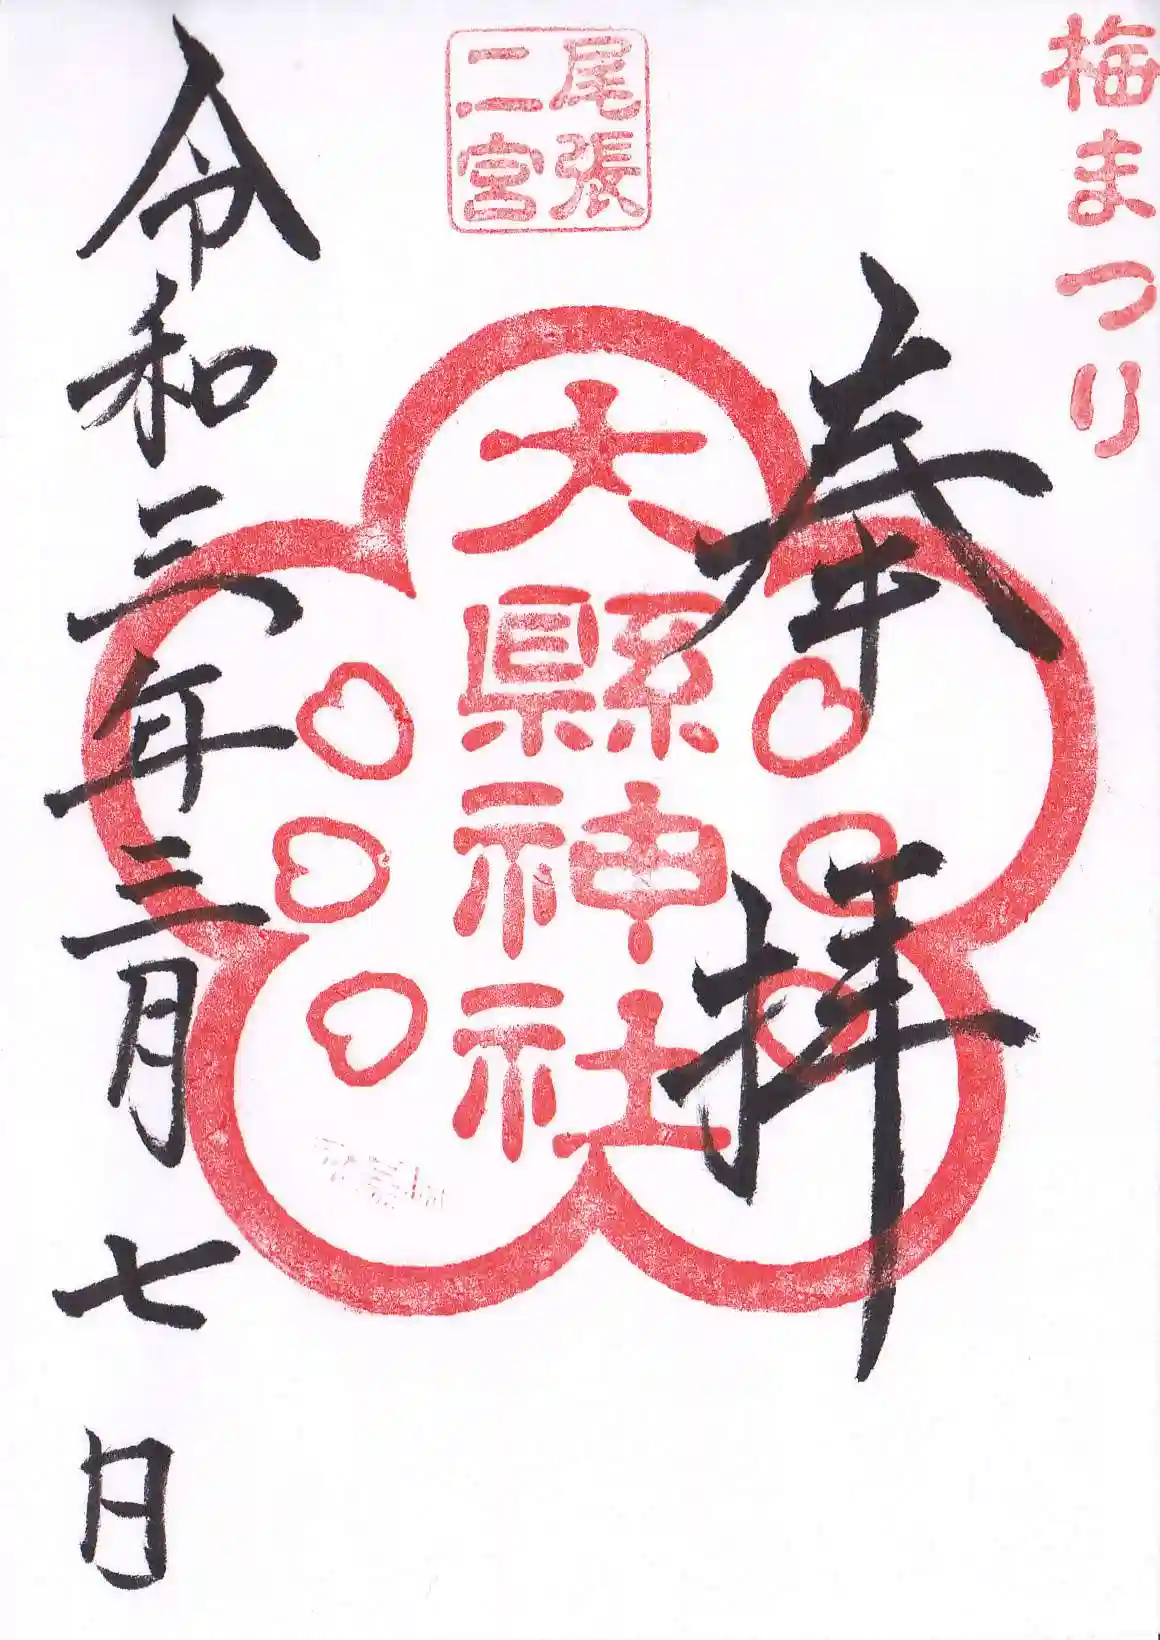 梅まつり
奉拝
尾張
二宮
大縣神社
令和三年三月七日